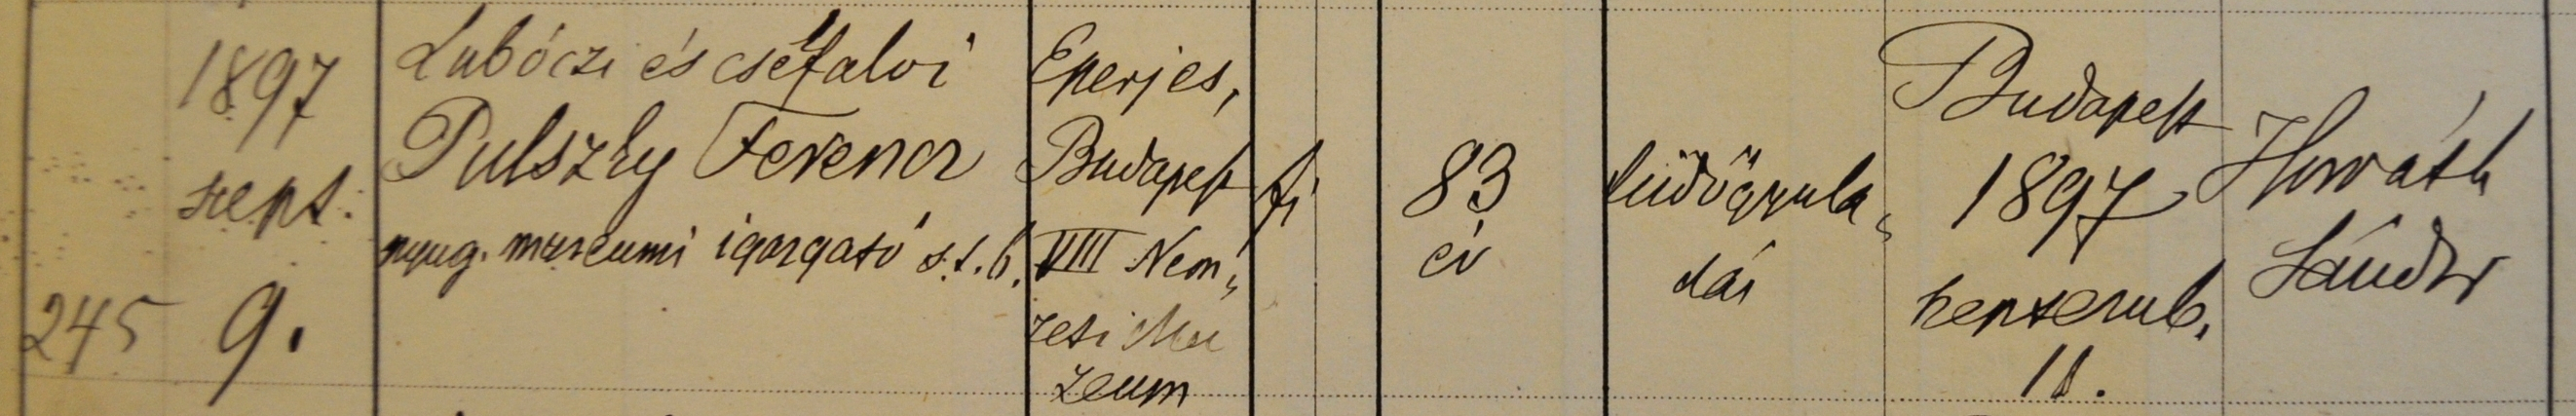 245
1897
szept.
9.
Lubóczi és cséfalvi
Pulszky Ferencz
nyug. muzeumi igazgató s.t.b.
Eperjes,
Budapest
VIII Nem„
zeti Mu
zeum
fi
83
év
tüdőgyula„
dás
Budapest
1897
szeptemb.
11.
Horváth
Sándor